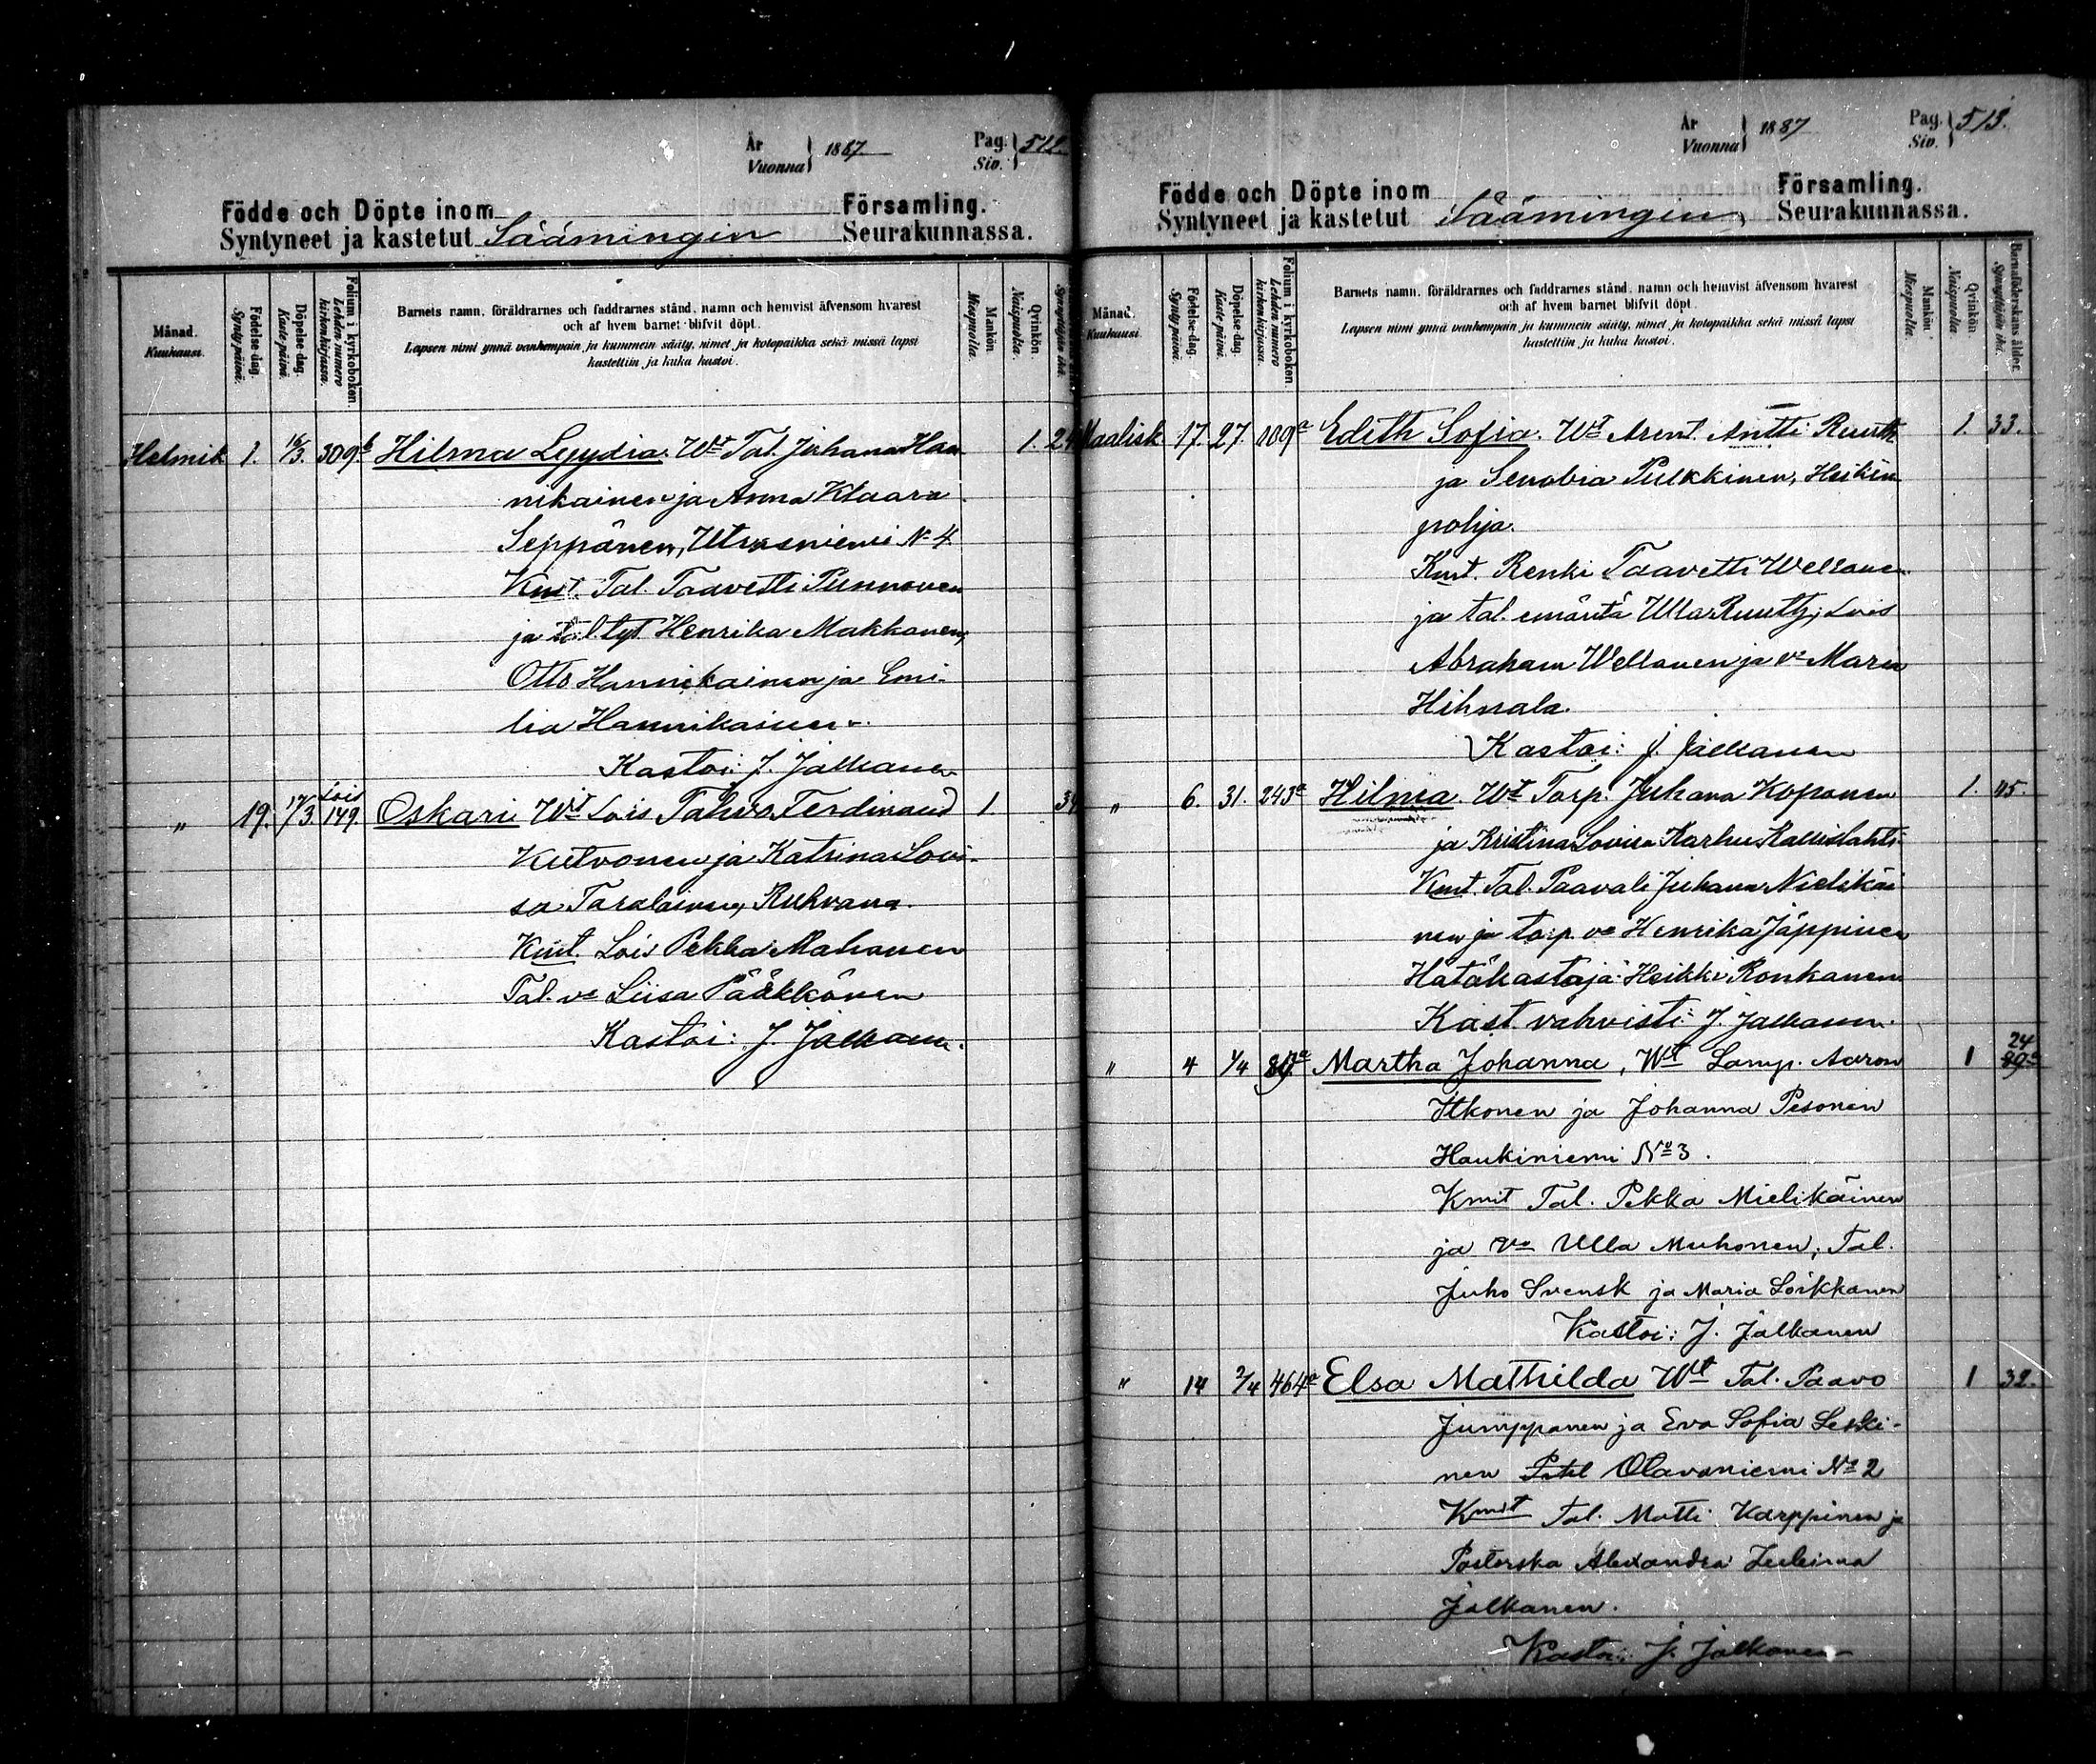 År
Vuonna } 1887 Pag. Siv. } 512.
Födde och Döpte inom Församling.
Syntyneet ja kastetut Säämingin Seurakunnassa.
Månad. Kuukausi.
Födelse-dag. Synty päivä.
Döpelse-dag. Kaste-päivä.
Folium i kyrkoboken. Lehden numero kirkonkirjassa.
Barnets namn, föräldrarnes och faddrarnes stånd, namn och hemvist äfvensom hvarest
och af hvem barnet blifvit döpt.
Lapsen nimi ynnä vanhempain ja kummein sääty, nimet ja kotopaikka sekä missä lapsi
kastettiin ja kuka kastoi.
Mankön. Miespuolta.
Qvinkön. Naispuolta.
Helmik 1. 16/3. 309b Hilma Lyydia. Wt Tal. Juhana Han 1. 24
nikainen ja Anna Klaara
Seppänen, Utrasniemi No 4.
Kmt. Tal. Taavetti Punnonen
ja tal. tyt Henrika Makkonen,
Otto Hannikainen ja Emi-
lia Hannikainen.
Kastoi: J. Jalkanen
" 19. 17/3. Lois 149. Oskari Wt Lois Tahvo Ferdinand 1.
Kutvonen ja Katrina Lovi-
sa Taralainen, Ruhvana.
Kmt. Lois Pekka Mahonen
Tal. vo Liisa Pääkkönen
Kastoi: J. Jalkanen.
År
Vuonna } 1887 Pag. Siv. } 513.
Födde och Döpte inom Församling.
Syntyneet ja kastetut Säämingin Seurakunnassa.
Månad. Kuukausi.
Födelse-dag. Synty päivä.
Döpelse-dag. Kaste-päivä.
Folium i kyrkoboken. Lehden numero kirkonkirjassa.
Barnets namn, föräldrarnes och faddrarnes stånd, namn och hemvist äfvensom hvarest
och af hvem barnet blifvit döpt.
Lapsen nimi ynnä vanhempain ja kummein sääty, nimet ja kotopaikka sekä missä lapsi
kastettiin ja kuka kastoi.
Mankön. Miespuolta.
Qvinkön. Naispuolta.
Barnaföderskans ålder. Synnyttäjän ikä.
Maalisk. 17. 27. 109a Edith Sofia. Wt Arent. Antti Ruuth 1. 33.
ja Senobia Pulkkinen, Heikin
pohja.
Kmt. Renki Taavetti Wellonen
ja tal. emäntä Ulla Ruuth, Lois
Abraham Wellonen ja vo Maria
Kastoi: J. Jalkanen
" 6. 31. 243a Hilma. Wt Torp. Juhana Koponen 1. 45.
ja Kristina Lovisa Karhu Kallislahti
Kmt. Tal. Paavali Juhana Nielikäi
nen ja torp. vo Henrika Jäppinen
Hätäkastaja: Heikki Ronkanen
Kast. vahvisti: J. Jalkanen.
" 4 1/4 89a Martha Johanna, Wt Lamp. Aaron 1 24
Itkonen ja Johanna Pesonen
Haukiniemi No 3.
Kmit Tal. Pekka Mielikäinen
ja vo Ulla Muhonen, Tal.
Juho Svensk ja Maria Loikkanen
Kastoi: J. Jalkanen
" 14 2/4 464a Elsa Mathilda Wt Tal. Paavo 1 32.
Jumppanen ja Eva Sofia Leski-
nen Olavaniemi No 2
Kmit Tal. Matti Karppinen ja
Pastorska Alexandra Juliana
Jalkanen.
Kastoi: J. Jalkanen